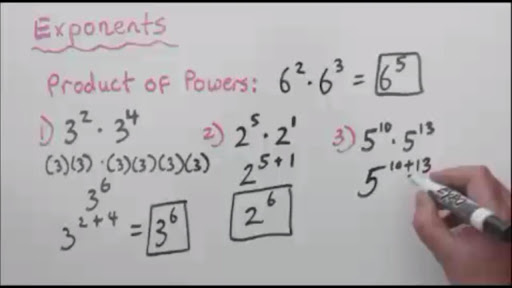 Exponents
Product of Powers: 6² · 6³ = 6⁵
1) 3² · 3⁴
(3)(3) · (3)(3)(3)(3)
3⁶
3²⁺⁴ = 3⁶
2) 2⁵ · 2¹
2⁵⁺¹
2⁶
3) 5¹⁰ · 5¹³
5¹⁰⁺¹³
EXPO